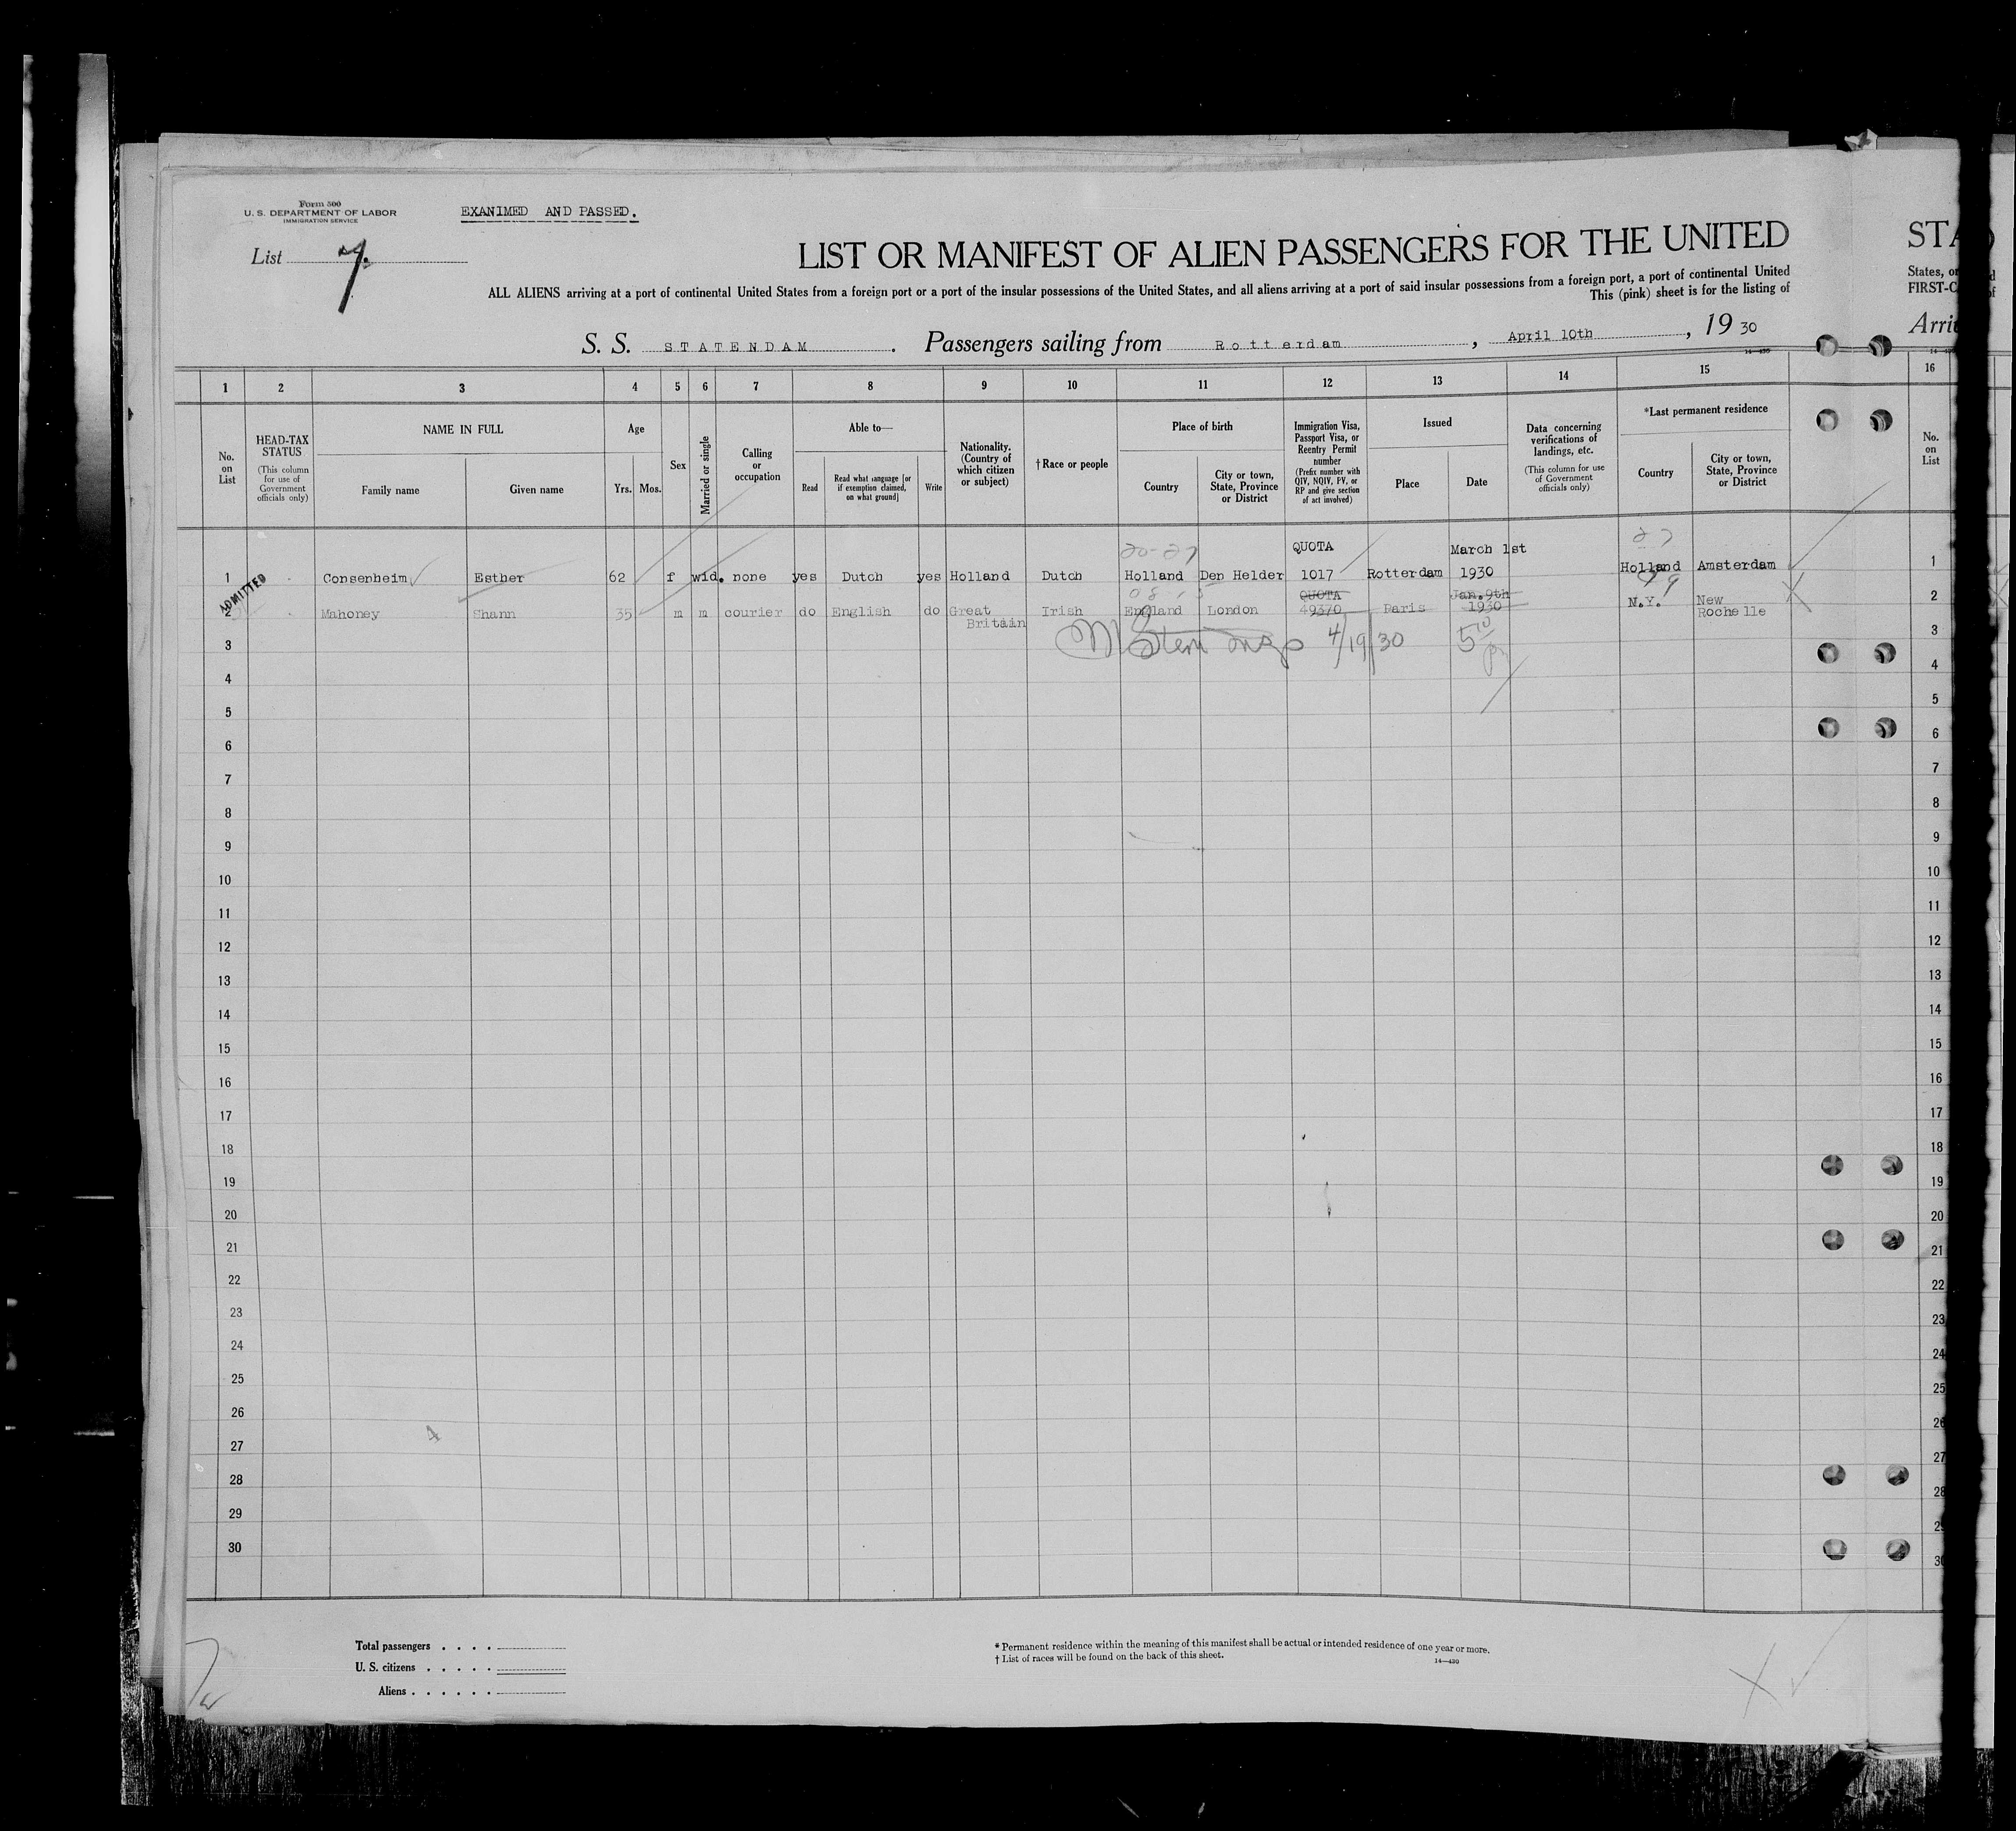 Form 500
U. S. DEPARTMENT OF LABOR
IMMIGRATION SERVICE
EXANIMED AND PASSED.
List 7.
LIST OR MANIFEST OF ALIEN PASSENGERS FOR THE UNITED
STA
ALL ALIENS arriving at a port of continental United States from a foreign port or a port of the insular possessions of the United States, and all aliens arriving at a port of said insular possessions from a foreign port, a port of continental United
States, or
This (pink) sheet is for the listing of
FIRST-C
S. S. STATENDAM. Passengers sailing from Rotterdam, April 10th, 19 30
Arri
1 2 3 4 5 6 7 8 9 10 11 12 13 14 15 16
No. on List
HEAD-TAX STATUS
(This column for use of Government officials only)
NAME IN FULL
Family name
Given name
Age
Yrs. Mos.
Sex
Married or single
Calling or occupation
Able to—
Read
Read what language [or if exemption claimed, on what ground]
Write
Nationality. (Country of which citizen or subject)
† Race or people
Place of birth
Country
City or town, State, Province or District
Immigration Visa, Passport Visa, or Reentry Permit number
(Prefix number with QIV, NQIV, PV, or RP and give section of act involved)
Issued
Place
Date
Data concerning verifications of landings, etc.
(This column for use of Government officials only)
*Last permanent residence
Country
City or town, State, Province or District
No. on List
20-27 QUOTA March 1st 27
1 Consenheim Esther 62 f wid. none yes Dutch yes Holland Dutch Holland Den Helder 1017 Rotterdam 1930 Holland Amsterdam 1
ADMITTED
QUOTA Jan. 9th 99
2 Mahoney Shann 35 m m courier do English do Great Britain Irish England London 49370 Paris 1930 N.Y. New Rochelle 2
3 4/19/30 3
4 4
5 5
6 6
7 7
8 8
9 9
10 10
11 11
12 12
13 13
14 14
15 15
16 16
17 17
18 18
19 19
20 20
21 21
22 22
23 23
24 24
25 25
26 26
4
27 27
28 28
29 29
30 30
Total passengers . . . .
U. S. citizens . . . . .
Aliens . . . . . .
* Permanent residence within the meaning of this manifest shall be actual or intended residence of one year or more.
† List of races will be found on the back of this sheet.
14—430